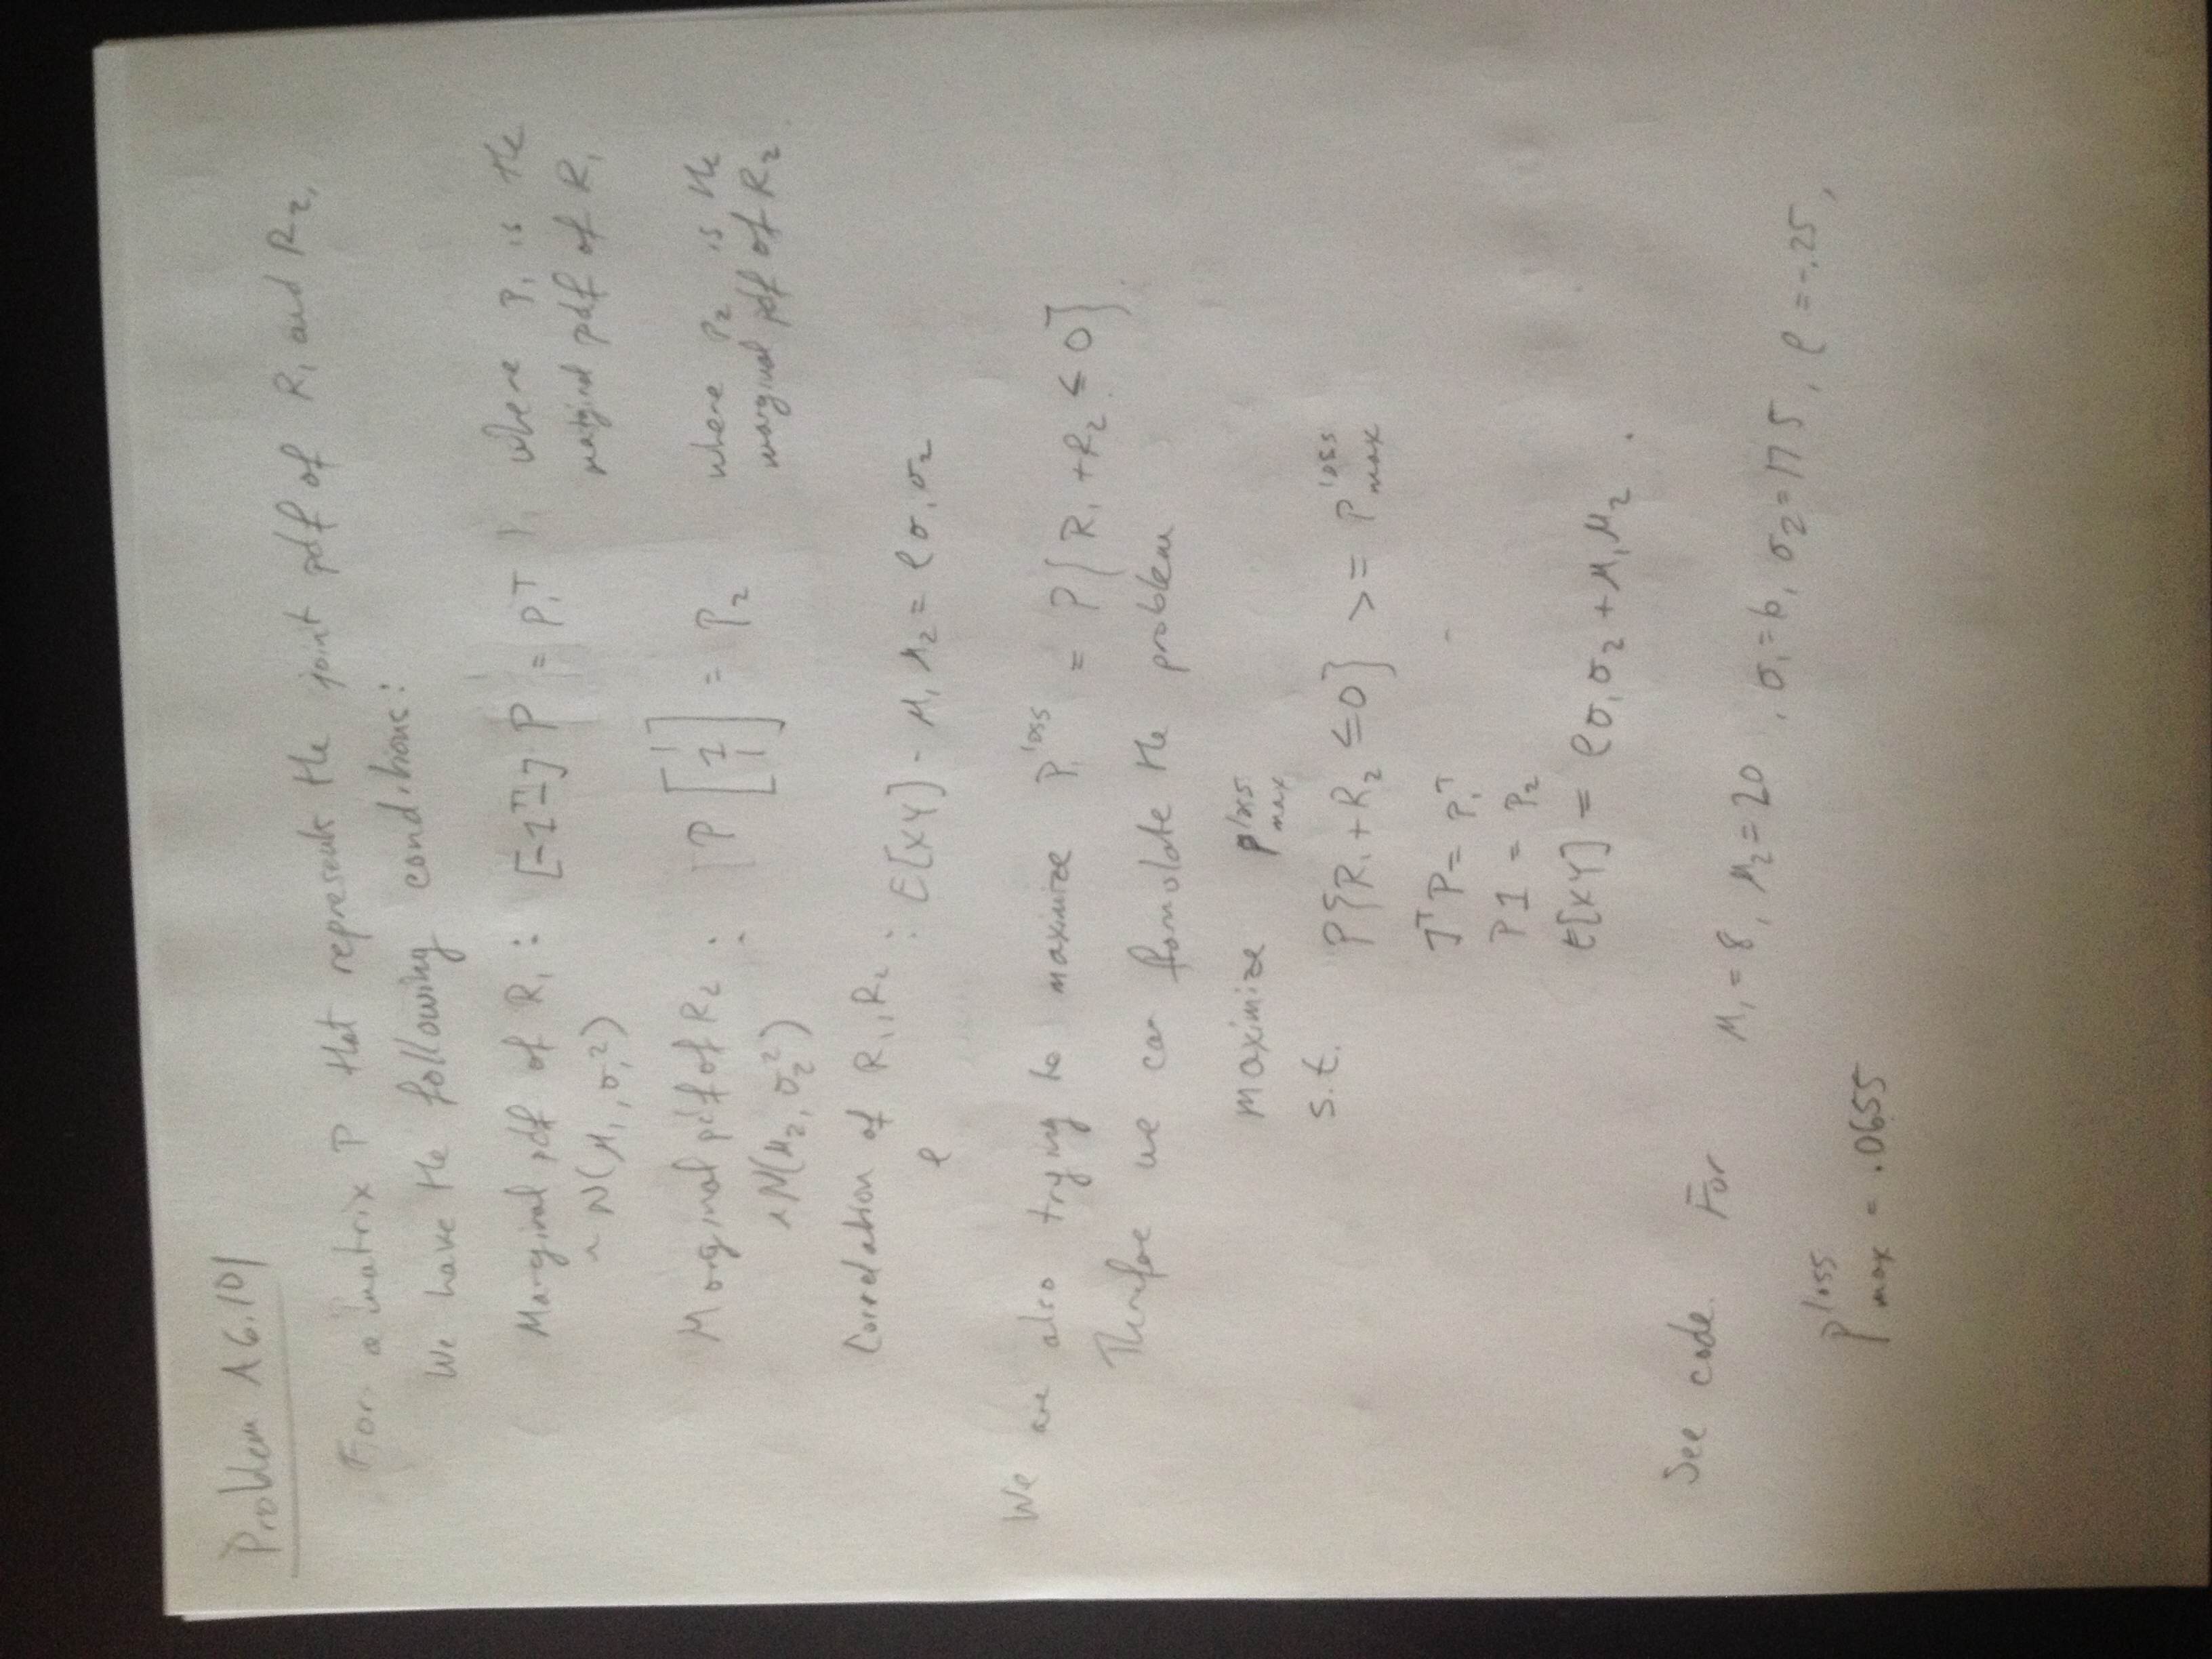 Problem A6.101
For a matrix P that represents the joint pdf of R₁ and R₂,
We have the following conditions:
Marginal pdf of R₁ : [-1ᵀ-] P = P₁ᵀ , where P₁ is the
~ N(μ₁, σ₁²) marginal pdf of R₁
Marginal pdf of R₂ : P [1] = P₂ where P₂ is the
~ N(μ₂, σ₂²) marginal pdf of R₂
Correlation of R₁, R₂ : E[XY] - μ₁μ₂ = ρσ₁σ₂
ρ
We are also trying to maximize P^loss = P{R₁ + R₂ ≤ 0}
Therefore we can formulate the problem
maximize P^loss_max
s.t. P{R₁ + R₂ ≤ 0} >= P^loss_max
1ᵀP = P₁ᵀ
P1 = P₂
E[XY] = ρσ₁σ₂ + μ₁μ₂ .
See code. For μ₁ = 8, μ₂ = 20, σ₁ = 6, σ₂ = 17.5, ρ = -.25,
P^loss_max = .0655